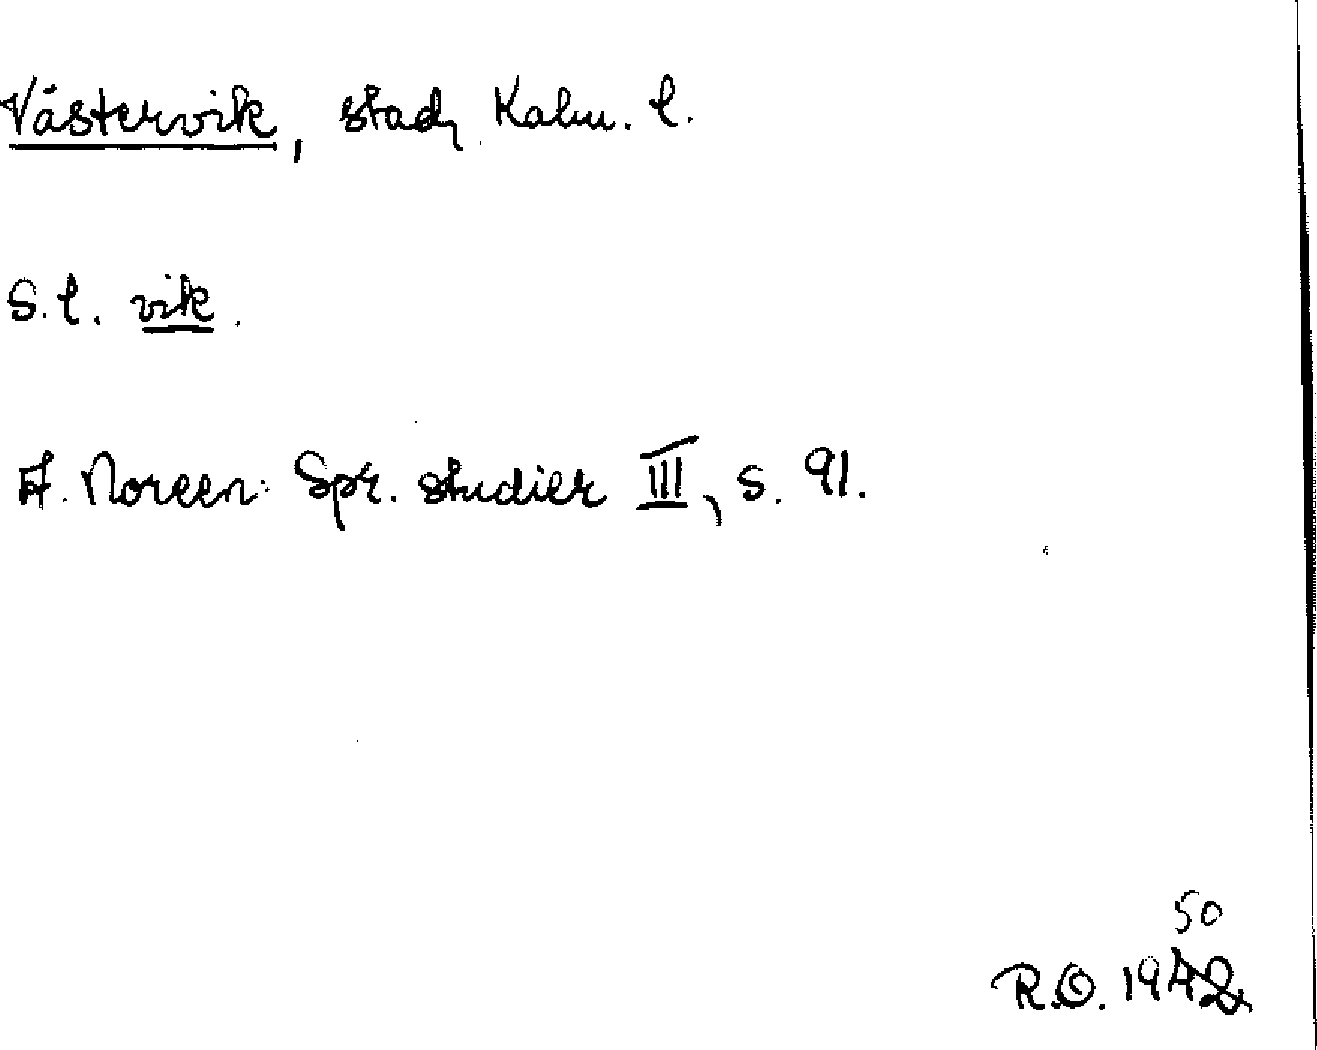 Västervik, stad, Kalm. l.
S.l. vik.
A. Noreen: Spr. studier III, s. 91.
50
R.O. 1942